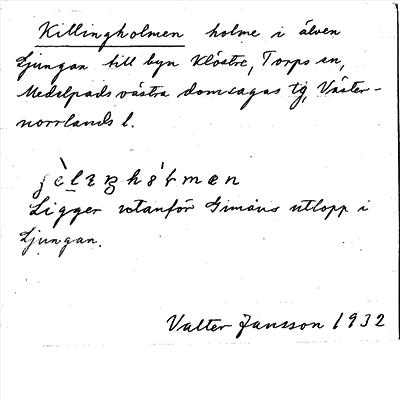 Killingholmen holme i älven
Ljungan till byn Klöstre, Torps sn,
Medelpads västra domsagas tg, Väster-
norrlands l.
Ligger utanför Gimåns utlopp i
Ljungan.
Valter Jansson 1932